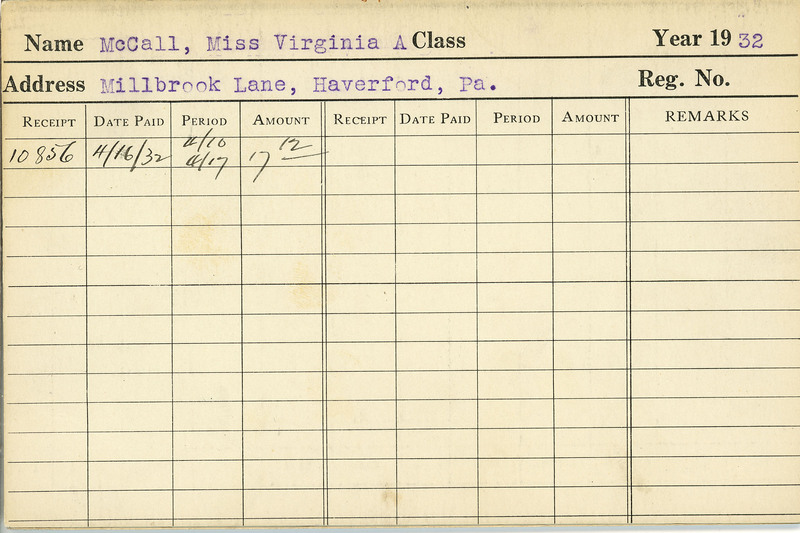 Name McCall, Miss Virginia A Class Year 19 32
Address Millbrook Lane, Haverford, Pa. Reg. No.
RECEIPT DATE PAID PERIOD AMOUNT RECEIPT DATE PAID PERIOD AMOUNT REMARKS
4/10
10856 4/16/32 4/17 17 12